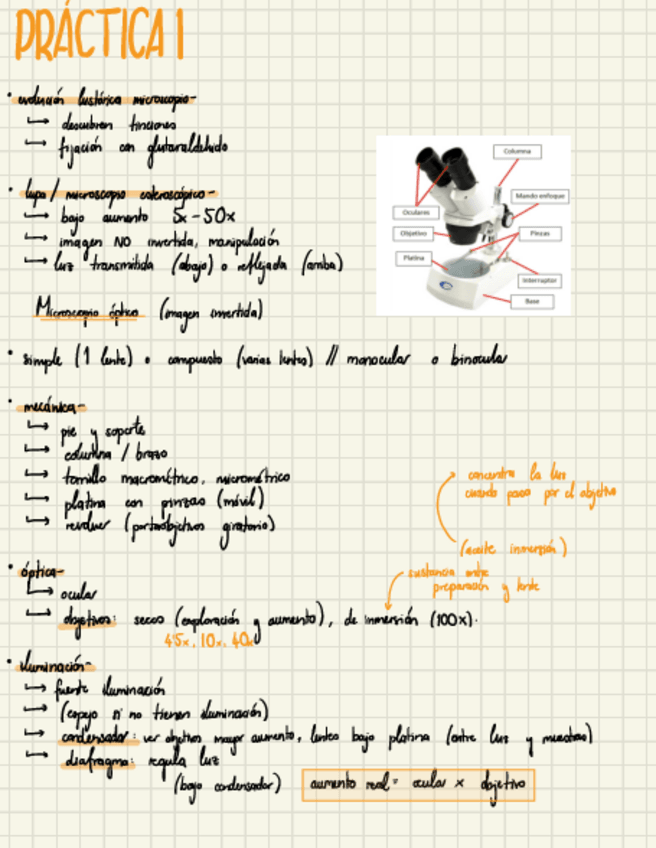 PRÁCTICA 1
· evolución histórica microscopio-
↳ descubren tinciones
↳ fijación con glutaraldehido
· lupa / microscopio estereoscópico-
↳ bajo aumento 5x-50x
↳ imagen NO invertida, manipulación
↳ luz transmitida (abajo) o reflejada (arriba)
Columna
Mando enfoque
Oculares
Objetivo
Pinzas
Platina
Interruptor
Base
Microscopio óptico (imagen invertida)
· simple (1 lente) o compuesto (varias lentes) // monocular o binocular
· mecánica-
↳ pie y soporte
↳ columna / brazo
↳ tornillo macrométrico, micrométrico
↳ platina con pinzas (móvil)
↳ revolver (portaobjetivos giratorio)
concentra la luz
cuando pasa por el objetivo
(aceite inmersión)
sustancia entre
preparación y lente
· óptica-
↳ ocular
↳ objetivos: secos (exploración y aumento), de inmersión (100x).
4'5x, 10x, 40x
· iluminación-
↳ fuente iluminación
↳ (espejo si no tienen iluminación)
↳ condensador: ver objetivos mayor aumento, lentes bajo platina (entre luz y muestra)
↳ diafragma: regula luz
(bajo condensador)
aumento real = ocular x objetivo